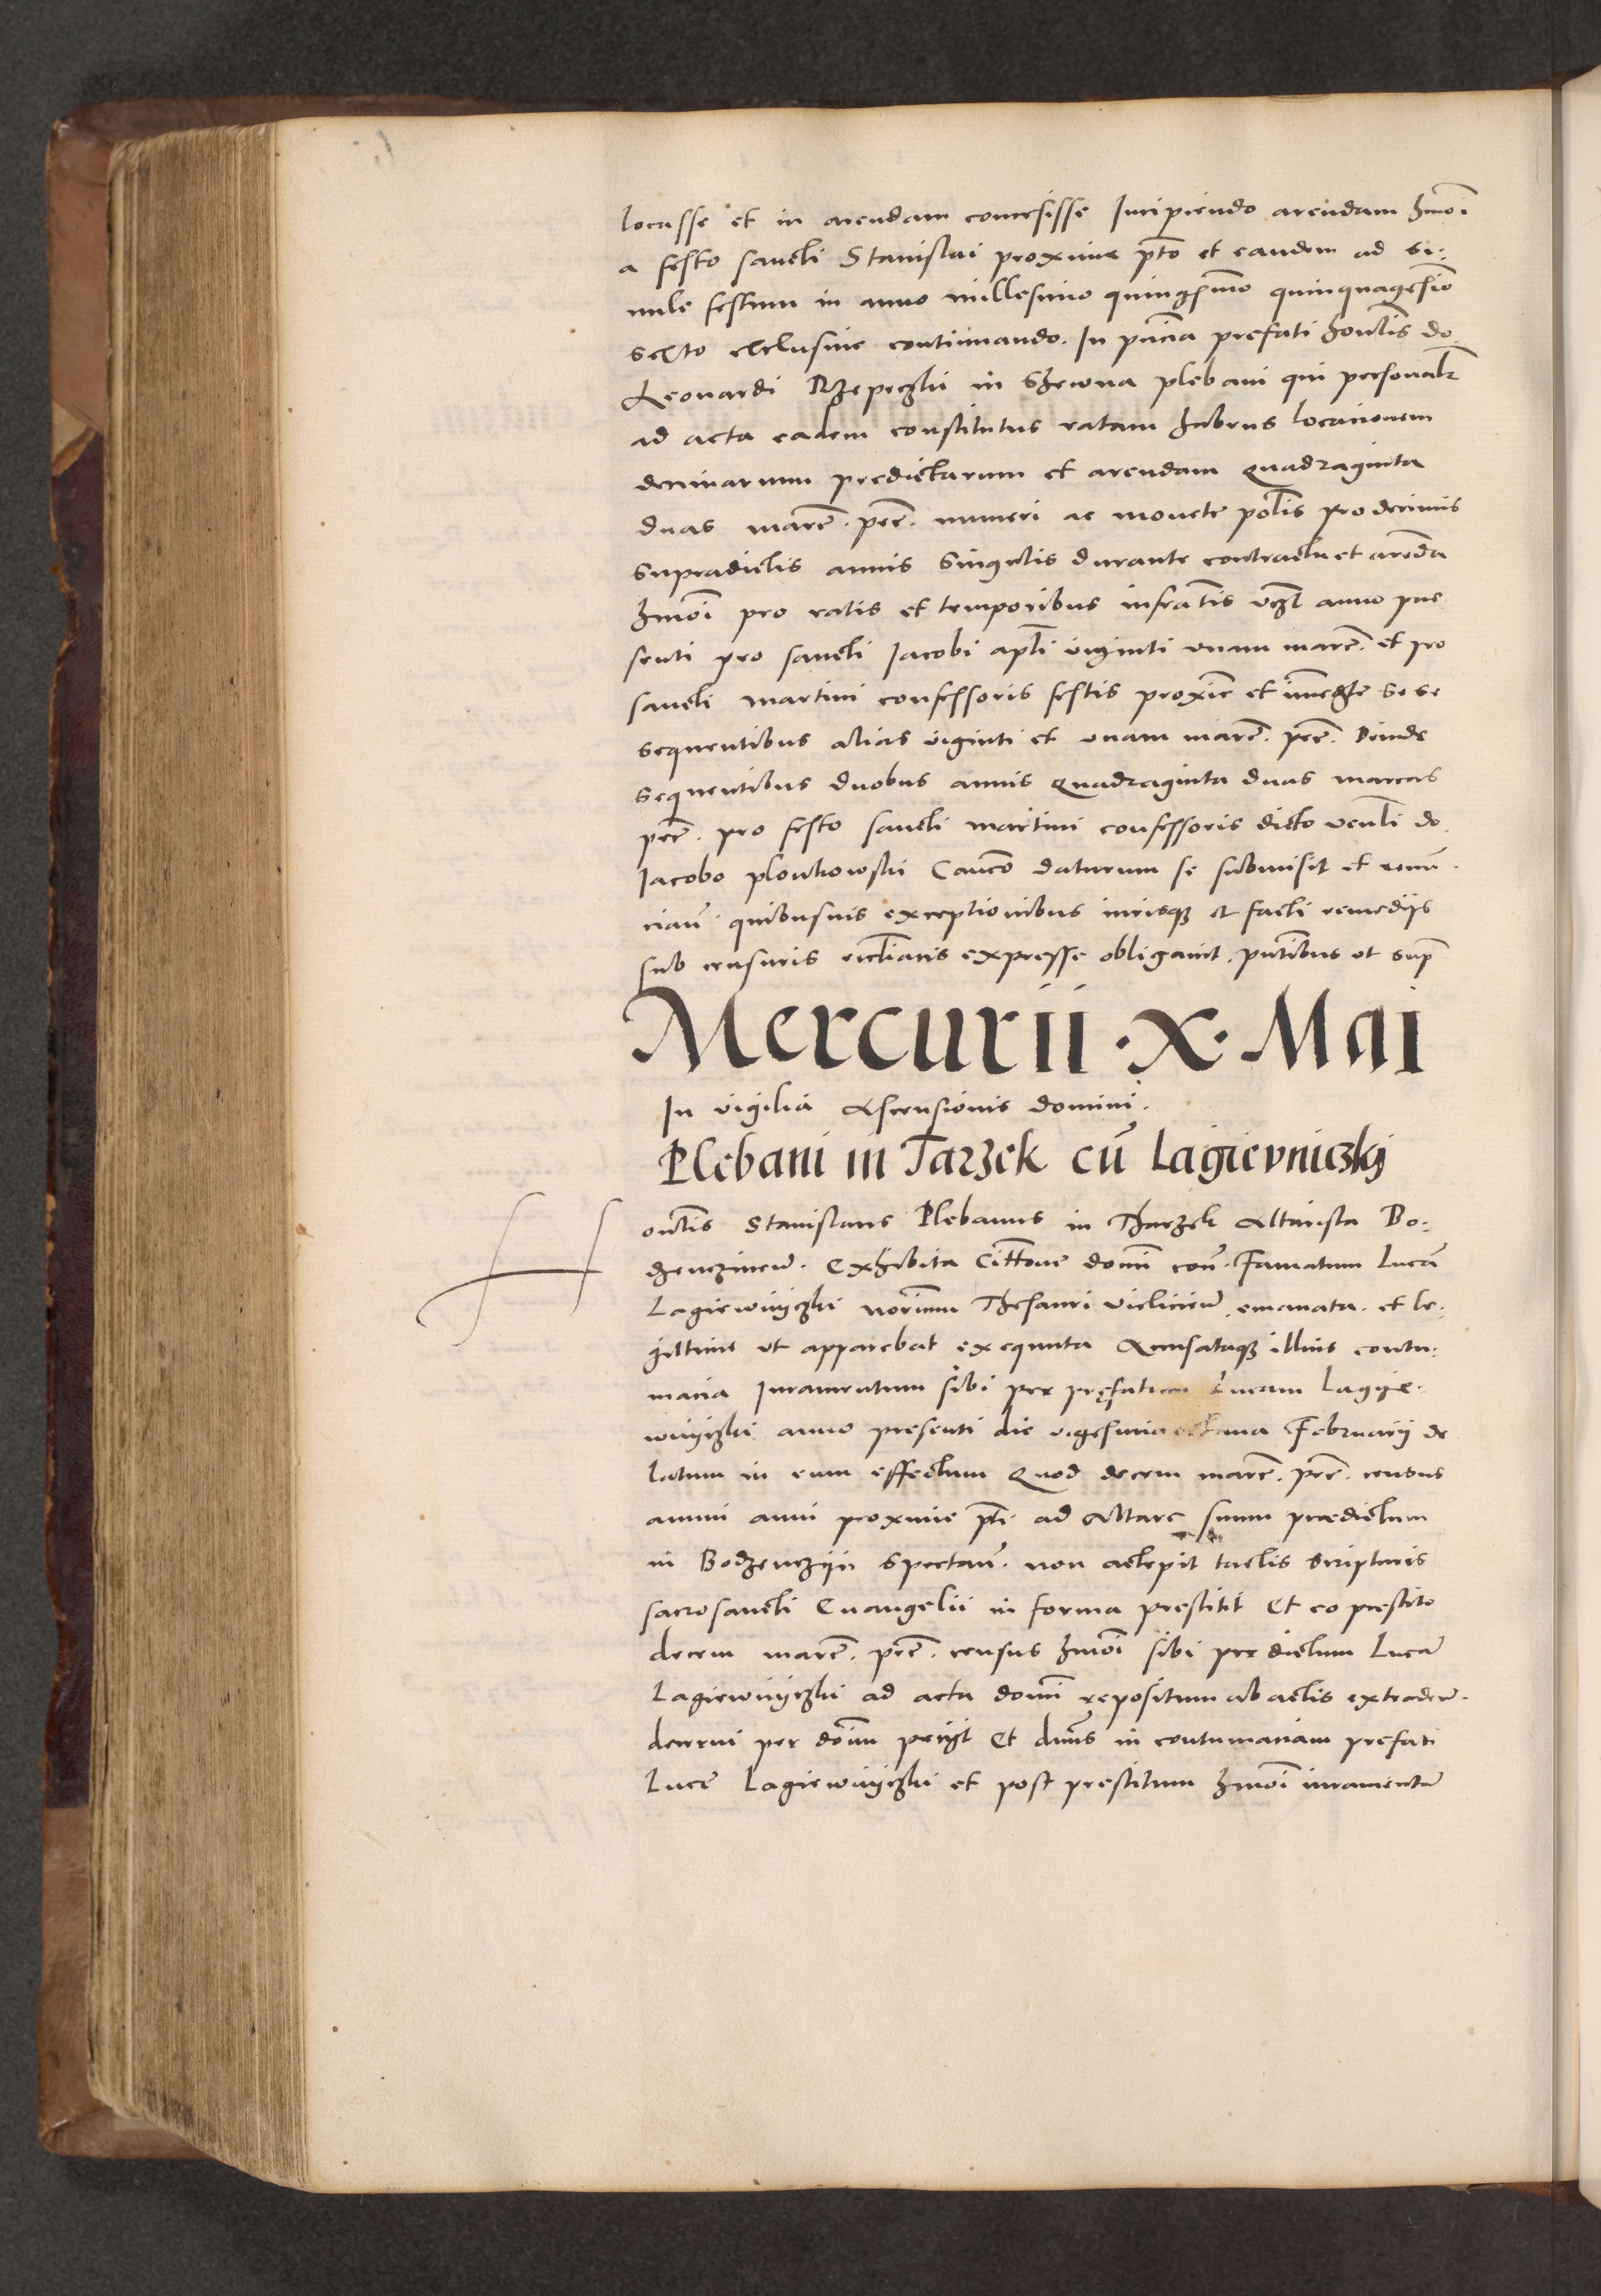 locasse et in arendam concesisse Incipiendo arendam hmoi
a festo sancti Stanislai proxime pto et eandem ad si-
mile festum in anno millesimo quingsmo quinquagesio
sexto exclusive continuando. In pncia prefati honlis do.
Leonardi Rzepeczki in Szewna plebani qui personalr
ad acta eadem constitutus ratam habens locacionem
decimarum predictarum et arendam Quadraginta
duas marc. pec. numeri ac monete polis pro decimis
supradictis annis singulis durante contractu et arenda
hmoi pro ratis et temporibus infratis vczl anno pre
senti pro sancti Jacobi apli viginti unam marc. et pro
sancti martini confessoris festis proxie et immegte se se
sequentibus alias viginti et unam marc. pec. Deinde
sequentibus duobus annis Quadraginta duas marcas
pec. pro festo sancti martini confessoris dicto venli do.
Jacobo plonkowski Canco daturum se submisit et renun.
cian. quibusvis exceptionibus iurisqz et facti remediis
sub censuris ecclianis expresse obligavit. pntibus ut sup
Mercurii · X · Maij
In vigilia Ascensionis domini.
Plebani in Tarzek cu Lagievniczkij
H
onlis Stanislaus Plebanus in Tharzek Altarista Bo-
dzenczinen. Exhibita Cittone domi con. Famatum Lucam
Lagiewnyczki norium Thesauri vielicien. emanata. et le-
gittime ut apparebat exequuta Accusataqz illius contu-
macia Juramentum sibi per prefatum Lucam Lagye-
wnyczki anno presenti die vigesima octava Februarij de
latum in eum effectum Quod decem marc. pec. census
annui anni proxime pti ad Altare suum praedictum
in Bodzenczyn spectan. non accepit tactis scripturis
sacrosancti Evangelii in forma prestitit Et eo prestito
decem marc. pec. census hmoi sibi per dictum Lucam
Lagiewnyczki ad acta domi repositum ab actis extraden.
decerni per dom pecijt Et dnus in contumaciam prefati
Luce Lagiewnyczki et post prestitum hmoi iuramentum